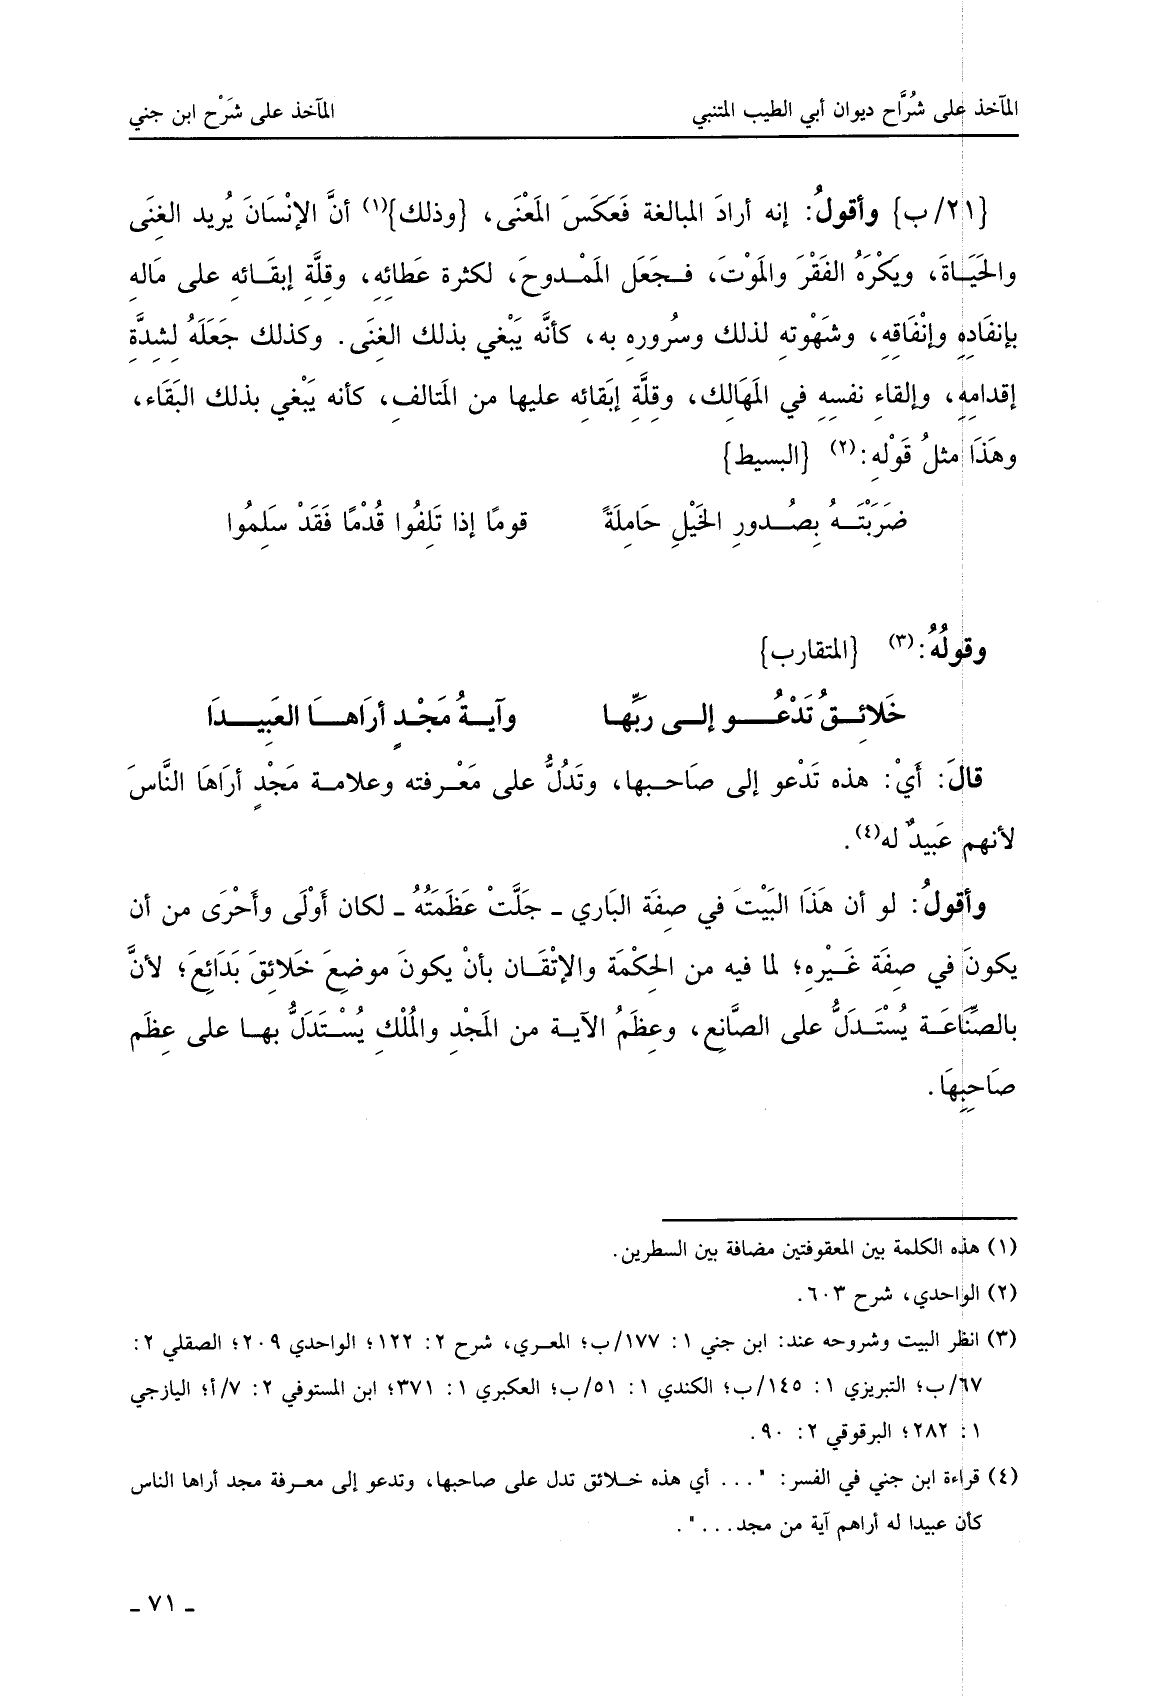 المآخذ على شُرَّاح ديوان أبي الطيب المتنبي المآخذ على شَرْح ابن جني
{٢١/ب} وأقولُ: إنه أرادَ المبالغة فَعَكَسَ المَعْنَى، {وذلك}(١) أنَّ الإنْسَانَ يُريد الغِنَى
والحَيَاةَ، ويَكْرَهُ الفَقْرَ والمَوْتَ، فجَعَل المَمْدوحَ، لكثرة عَطائِهِ، وقلَّةِ إبقَائهِ على مَالهِ
بإنفَادِهِ وإنْفَاقِهِ، وشَهْوتهِ لذلك وسُرورِهِ به، كأنَّه يَبْغي بذلك الغِنَى. وكذلك جَعَلَهُ لِشِدَّةِ
إقدامِهِ، وإلقاءِ نفسِهِ في المَهَالِك، وقلَّةِ إبَقائه عليها من المَتالفِ، كأنه يَبْغي بذلك البَقَاء،
وهَذَا مثلُ قَوْلهِ:(٢) {البسيط}
ضَرَبْتَهُ بِصُدورِ الخَيْلِ حَامِلَةً قومًا إذا تَلِفُوا قُدْمًا فَقَدْ سَلِمُوا
وقولُهُ:(٣) {المتقارب}
خَلائِقُ تَدْعُو إلى رَبِّها وآيةُ مَجْدٍ أرَاهَا العَبِيدَا
قالَ: أَيْ: هذه تَدْعو إلى صَاحبها، وتَدُلُّ على مَعْرفته وعلامة مَجْدٍ أرَاهَا النَّاسَ
لأنهم عَبيدٌ له(٤).
وأقولُ: لو أن هَذَا البَيْتَ في صِفَة البَاري ـ جَلَّتْ عَظَمَتُهُ ـ لكان أَوْلَى وأَحْرَى من أن
يكونَ في صِفَة غَيْرِهِ؛ لما فيه من الحِكْمَة والإتْقَان بأنْ يكونَ موضعَ خَلائقَ بَدَائعَ؛ لأنَّ
بالصِّنَاعَة يُسْتَدَلُّ على الصَّانِعِ، وعِظَمُ الآية من المَجْدِ والمُلْكِ يُسْتَدَلُّ بها على عِظَمِ
صَاحِبِهَا.
(١) هذه الكلمة بين المعقوفتين مضافة بين السطرين.
(٢) الواحدي، شرح ٦٠٣.
(٣) انظر البيت وشروحه عند: ابن جني ١: ١٧٧/ب؛ المعري، شرح ٢: ١٢٢؛ الواحدي ٢٠٩؛ الصقلي ٢:
٦٧/ب؛ التبريزي ١: ١٤٥/ب؛ الكندي ١: ٥١/ب؛ العكبري ١: ٣٧١؛ ابن المستوفي ٢: ٧/أ؛ اليازجي
١: ٢٨٢؛ البرقوقي ٢: ٩٠.
(٤) قراءة ابن جني في الفسر: "... أي هذه خلائق تدل على صاحبها، وتدعو إلى معرفة مجد أراها الناس
كأن عبيدا له أراهم آية من مجد...".
ـ ٧١ ـ